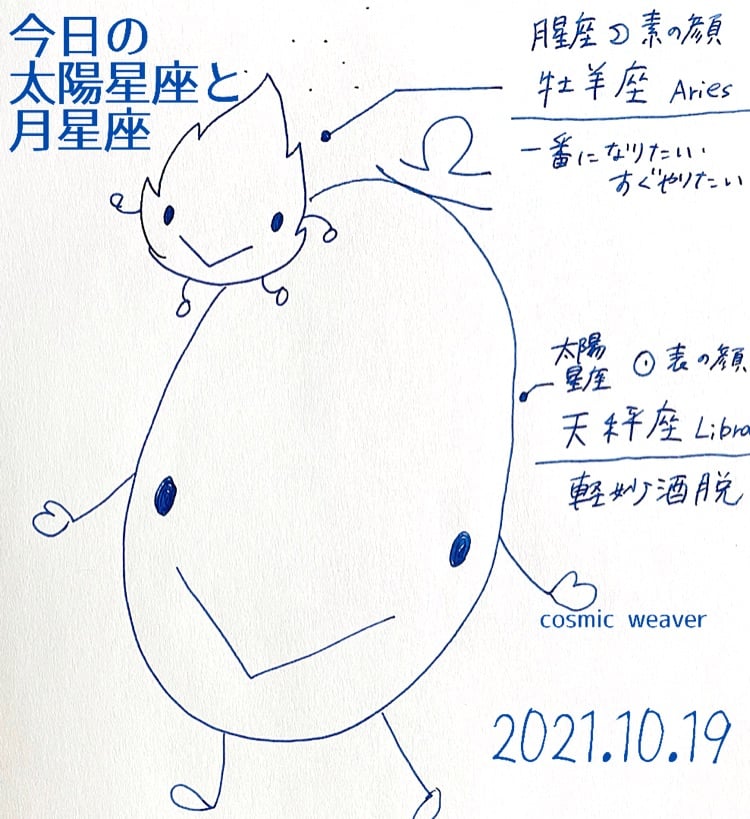 今日の
太陽星座と
月星座
月星座☽素の顔
牡羊座 Aries
一番になりたい
すぐやりたい
♎
太陽
星座
☉表の顔
天秤座 Libra
軽妙洒脱
cosmic weaver
2021.10.19